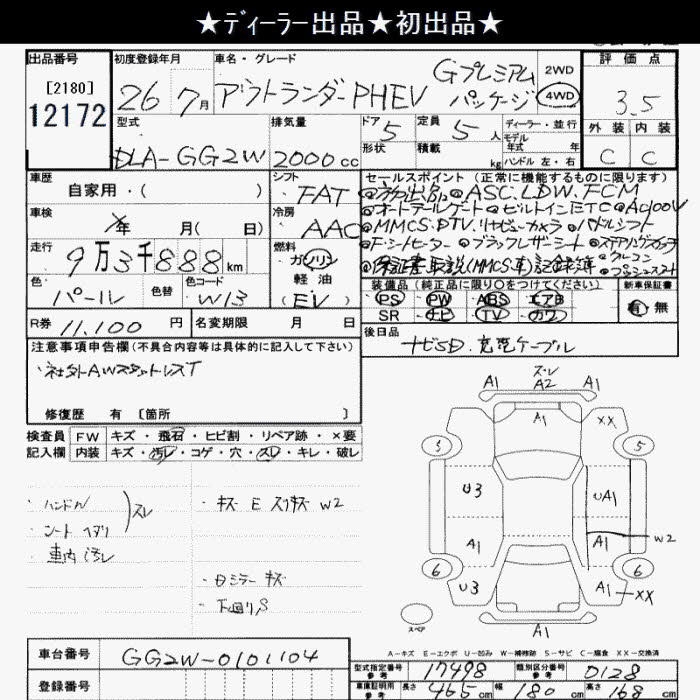 ★ディーラー出品★初出品★
出品番号
[2180]
12172
初度登録年月
26 7月
車名・グレード
アウトランダーPHEV
Gプレミアム
パッケージ
2WD
4WD
評価点
3.5
外装 内装
C C
型式
DLA-GG2W
排気量
2000cc
ドア 5
形状
定員 5人
積載 kg
ディーラー・並行
モデル
年式 年
ハンドル 左・右
車歴
自家用・( )
シフト
FAT
車検
年 月( 日)
冷房
AAC
走行
9万3千888km
燃料
ガソリン
軽油
(EV)
色
パール
色替
色コード
W13
R券 11,100円
名変期限 月 日
セールスポイント(正常に機能するものに限ります)
ASC.LDW.FCM
オートテールゲート ビルトインETC AC100V
MMCS.DTV.リヤビューカメラ パドルシフト
F・シートヒーター ブラックレザーシート
保証書取説(MMCS.車)記録簿
装備品(純正品に限り○をつけてください)
PS PW ABS エアB
SR ナビ TV カワ
新車保証書
有 無
後日品
ナビSD.充電ケーブル
注意事項申告欄(不具合内容等は具体的に記入して下さい)
社外AWスタットレスT
修復歴 有 [箇所 ]
検査員
記入欄
FW キズ・飛石・ヒビ割・リペア跡・×要
内装 キズ・汚レ・コゲ・穴・スレ・キレ・破レ
・ハンドル
・シート ヘタリ
スレ
・車内汚レ
・キズ E スリキズ W2
・Dミラー キズ
・下回りS
スレ
A1 A2 A1
A1 XX
5 5
U3 UA1
A1 A1 W2
6 6
U3 A1 XX
A1
スペア
A-キズ E-エクボ U-凹み W-補修跡 S-サビ C-腐食 XX-交換済
車台番号
GG2W-0101104
登録番号
型式指定番号
参考
17498
類別区分番号
参考
0128
車庫証明用
参考
長さ 465cm 幅 180cm 高さ 168cm